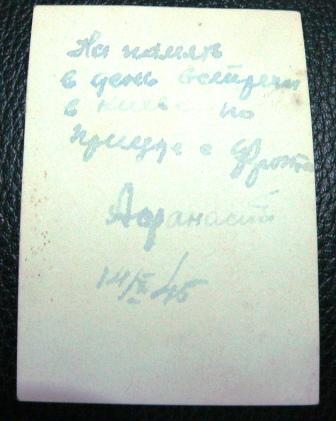 На память
в день встречи
в Киеве по
приезде с фронта
Афанасий
14/X 45